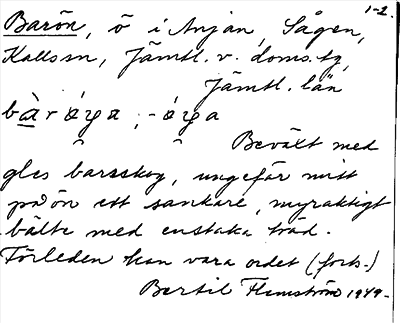 1-2.
Barön, ö i Anjan, Sågen,
Kallssn, Jämtl. v. doms.tg,
Jämtl. län
Bevält med
gles barrskog, ungefär mitt
på ön ett sankare, myraktigt
bälte med enstaka träd.
Förleden kan vara ordet (forts.)
Bertil Flemström 1949.